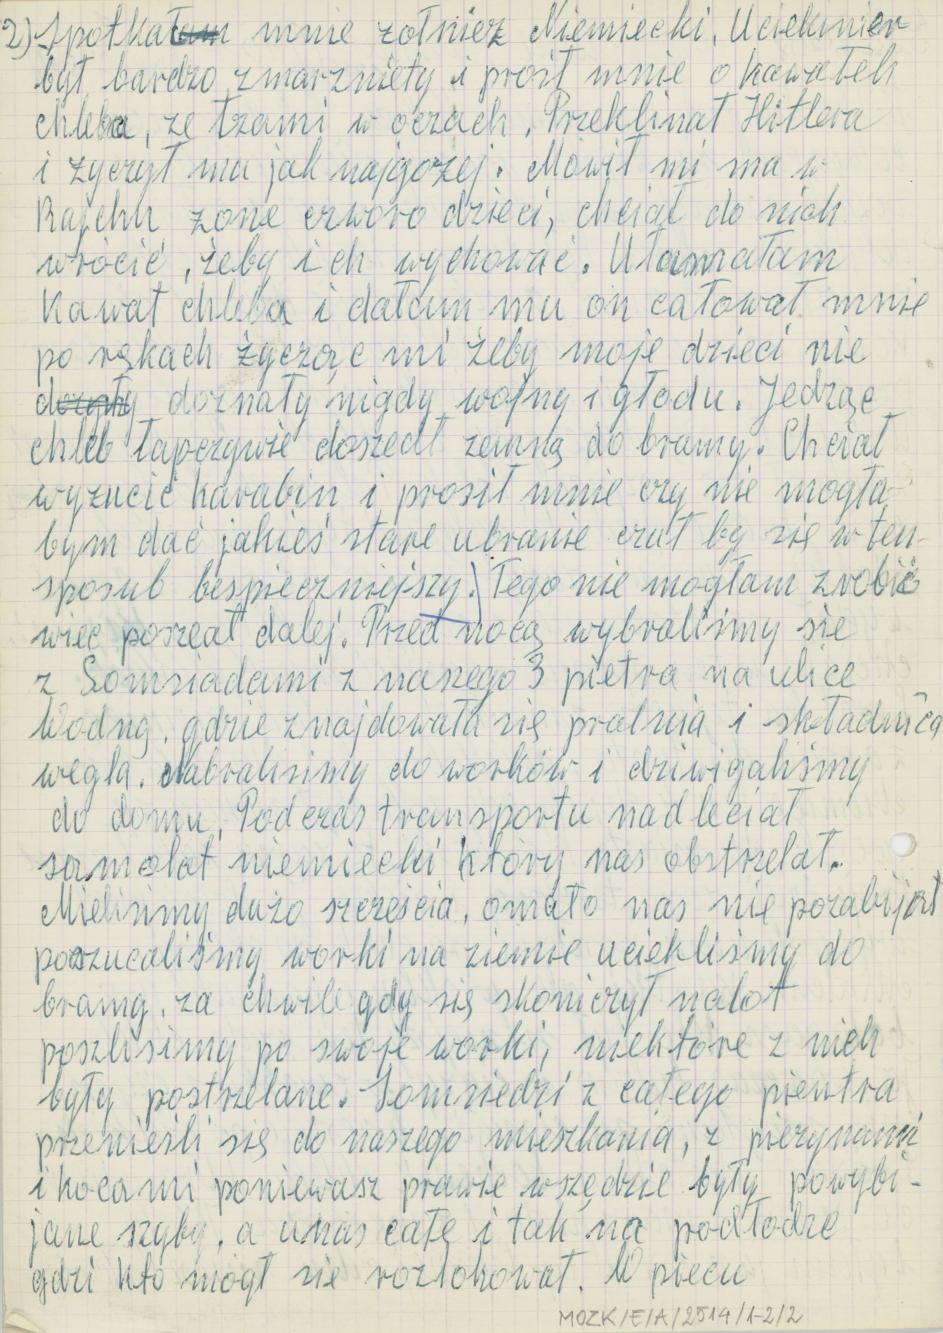 2) Spotkałam mnie żołnierz Niemiecki. Uciekinier
był bardzo zmarznięty i prosił mnie o kawałek
chleba, ze łzami w oczach. Przeklinał Hitlera
i życzył mu jak najgorzej. Mówił mi ma w
Rajchu żone czworo dzieci, chciał do nich
wrócić, żeby ich wychować. Ułamałam
kawał chleba i dałam mu on całował mnie
po rękach życząc mi żeby moje dzieci nie
doznały nigdy wojny i głodu. Jedząc
chleb łapczywie doszedł zemną do bramy. Chciał
wyzucić karabin i prosił mnie czy nie mogła-
bym dać jakieś stare ubranie czuł by się w ten
sposub bespieczniejszy. Tego nie mogłam zrobić
więc poszedł dalej. Przed nocą wybraliśmy sie
z Somsiadami z naszego 3 piętra na ulice
Wodną, gdzie znajdowała się pralnia i składnica
węgla. Nabraliśmy do worków i dzwigaliśmy
do domu. Podczas transportu nadleciał
samolot niemiecki który nas obstrzelał.
Mieliśmy dużo szczęścia, omało nas nie pozabijał
poszucaliśmy worki na ziemie uciekliśmy do
bramy, za chwile gdy się skończył nalot
poszliśmy po swoje worki, niektóre z nich
były postrzelane. Somsiedzi z całego pientra
przenieśli się do naszego mieszkania, z pierzynami
i kocami poniewasz prawie wszędzie były powybi-
jane szyby, a unas całe i tak na podłodze
gdzi kto mógł sie rozlokował. W piecu
MOZK/E/A/2514/1-2/2